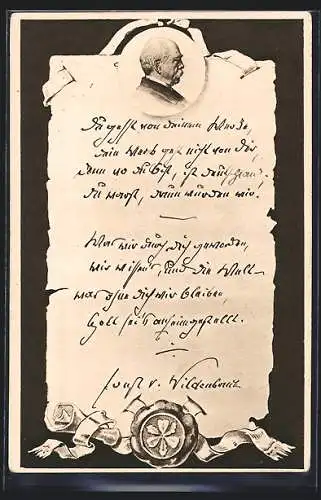 Du gehst von deinem Werke,
dein Werk geht nicht von dir,
denn wo du bist, ist Deutschland,
du warst, drum wurden wir.
Was wir durch dich geworden,
wir wissen's und die Welt –
was ohne dich wir bleiben,
Gott sei's anheimgestellt.
Ernst v. Wildenbruch